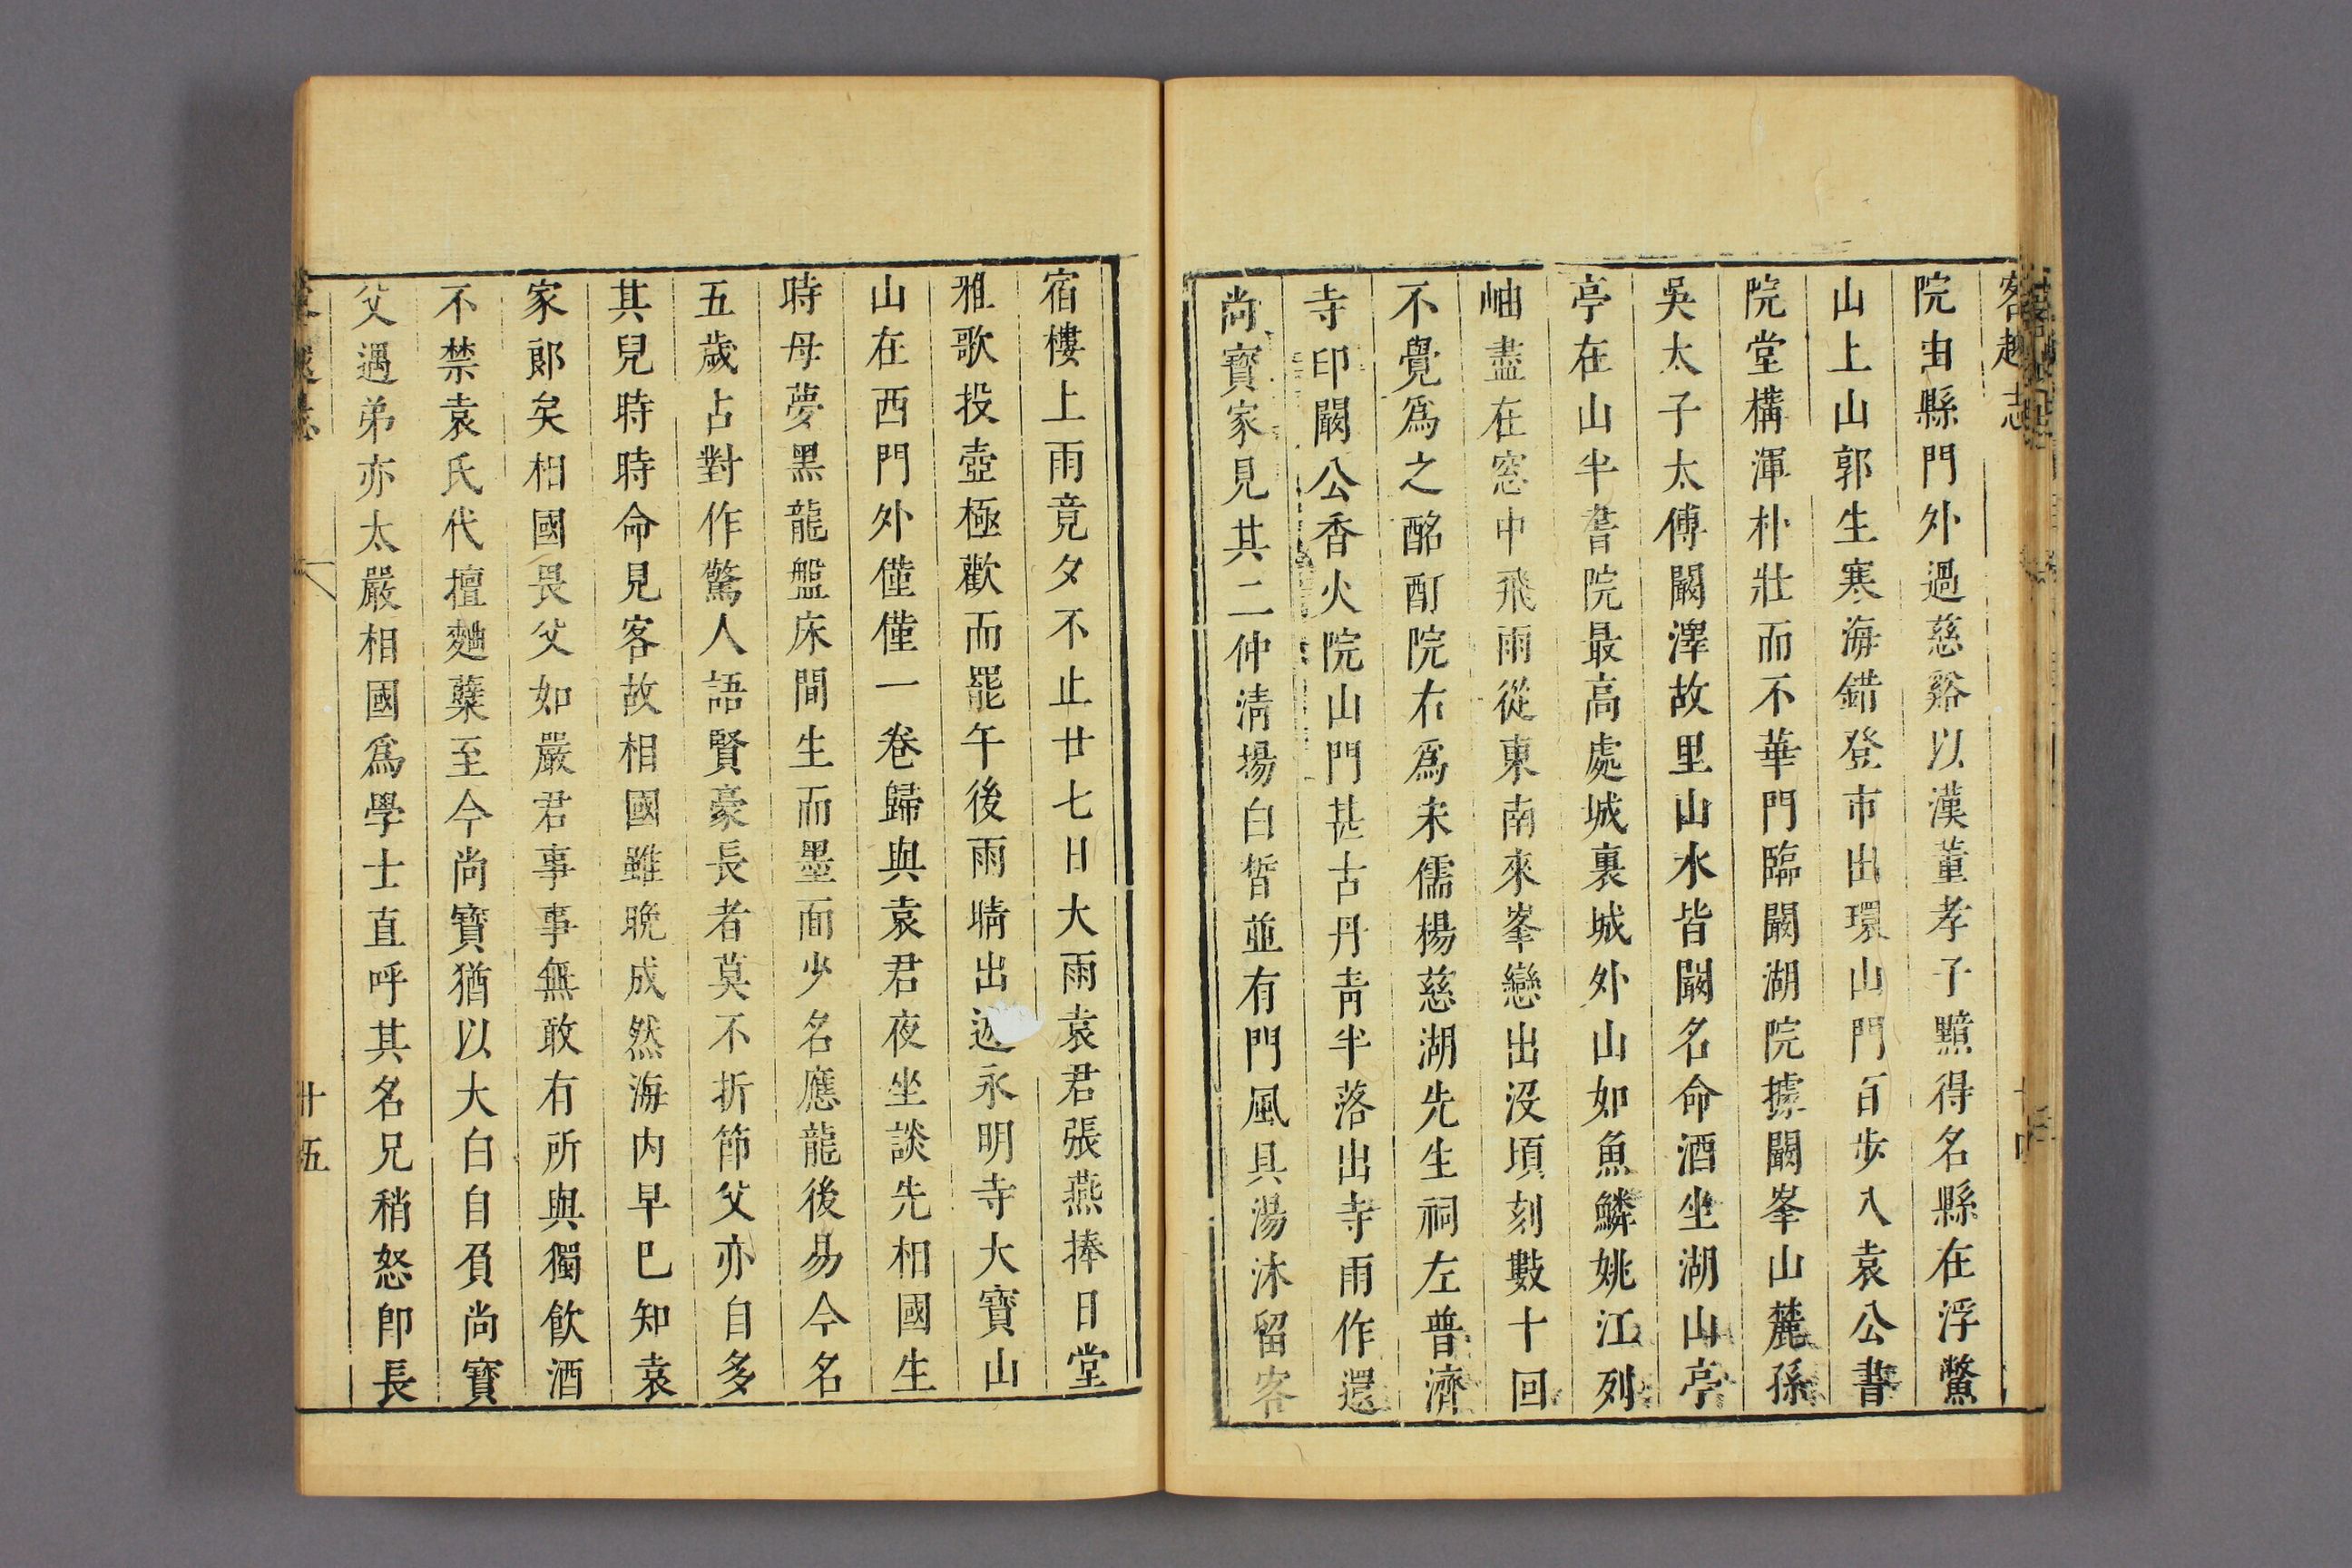 客越志
院由縣門外過慈谿以漢董孝子黯得名縣在浮鱉
山上山郭生寒海錯登市出環山門百步入袁公書
院堂構渾朴壯而不華門臨闞湖院據闞峯山麓孫
吳太子太傅闞澤故里山水皆闞名命酒坐湖山亭
亭在山半書院最高處城裏城外山如魚鱗姚江列
岫盡在窓中飛雨從東南來峯巒出没頃刻數十回
不覺爲之酩酊院右爲未儒楊慈湖先生祠左普濟
寺印闞公香火院山門甚古丹青半落出寺雨作還
尚寶家見其二仲清場白晢並有門風具湯沐留客
宿樓上雨竟夕不止廿七日大雨袁君張燕捧日堂
雅歌投壺極歡而罷午後雨晴出 永明寺大寶山
山在西門外僅僅一卷歸與袁君夜坐談先相國生
時母夢黑龍盤床間生而墨面少名應龍後易今名
五歲占對作驚人語賢豪長者莫不折節父亦自多
其兒時時命見客故相國雖晚成然海内早已知袁
家郎矣相國畏父如嚴君事事無敢有所與獨飲酒
不禁袁氏代壇麯蘖至今尚寶猶以大白自負尚寶
父遇弟亦太嚴相國爲學士直呼其名兄稍怒即長
十五